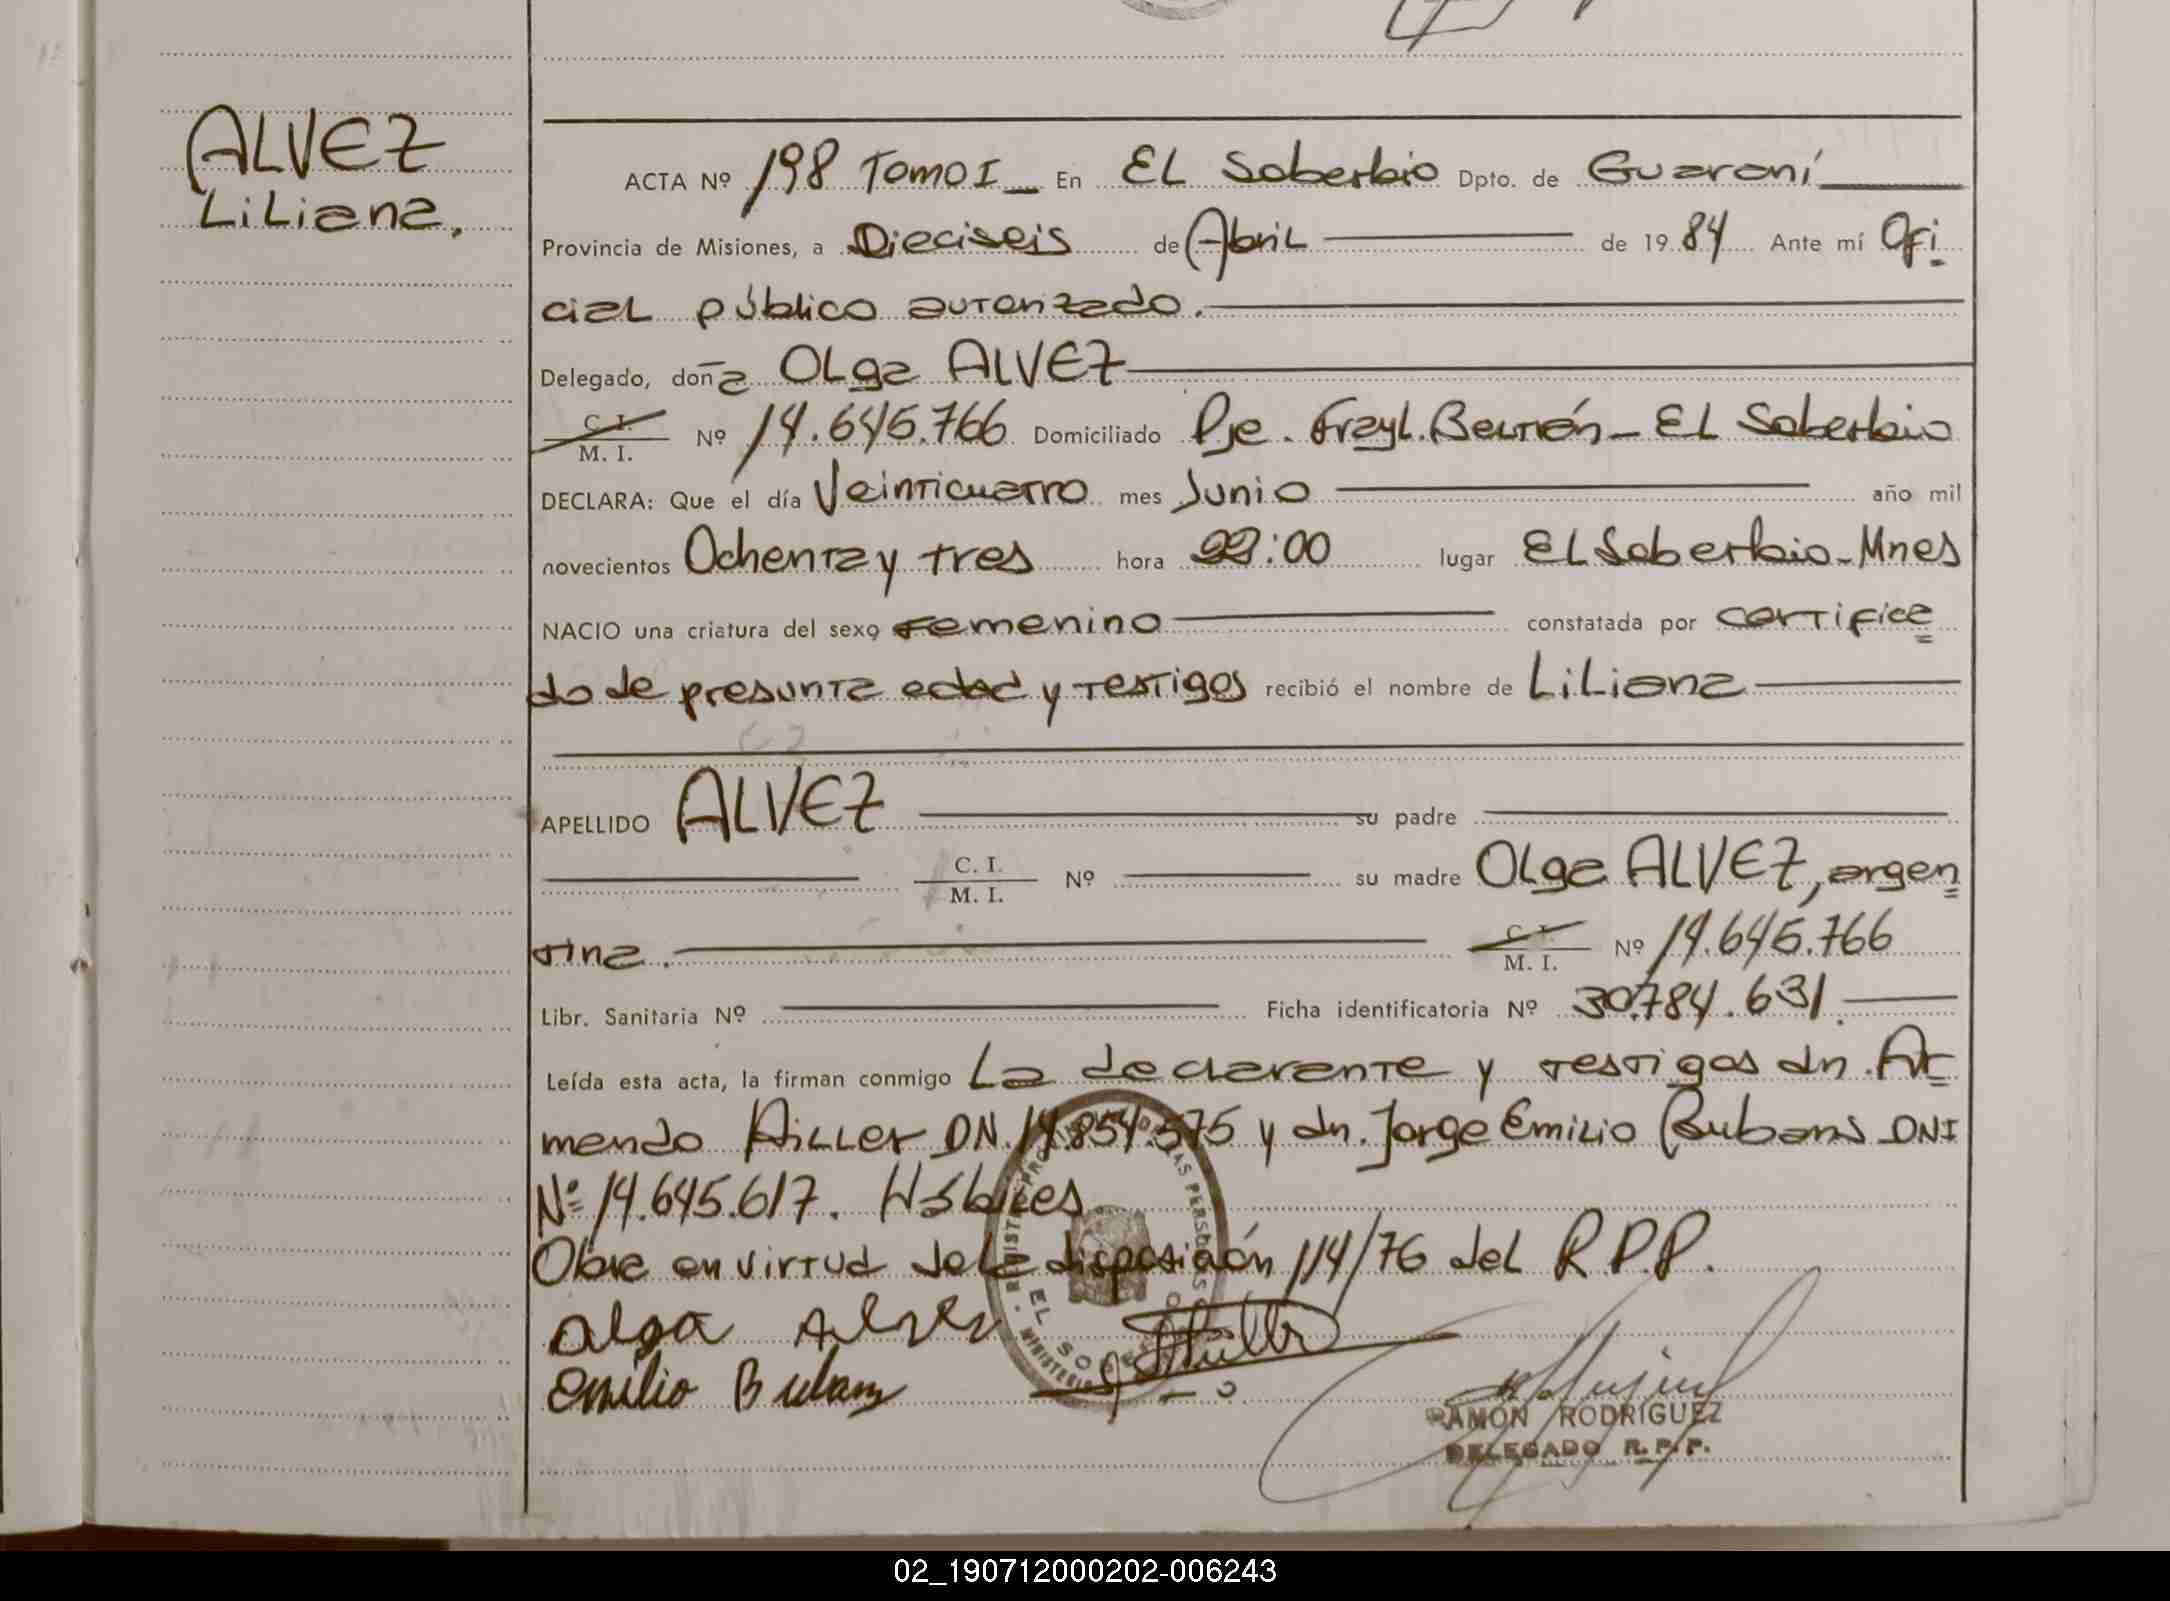 ALVEZ
Liliana.
ACTA Nº 198 Tomo I_ En El Soberbio Dpto. de Guaraní
Provincia de Misiones, a Dieciseis de Abril de 1984 Ante mí Ofi
cial público autorizado.
Delegado, doña Olga ALVEZ
C. I.
M. I. Nº 14.645.766 Domiciliado Pje. Frayl. Beltrán - El Soberbio
DECLARA: Que el día Veinticuatro mes Junio año mil
novecientos Ochenta y tres hora 22:00 lugar El Soberbio - Mnes
NACIO una criatura del sexo Femenino constatada por certifica
do de presunta edad y testigos recibió el nombre de Liliana
APELLIDO ALVEZ su padre
C. I.
M. I. Nº su madre Olga ALVEZ, argen
tina. C. I.
M. I. Nº 14.645.766
Libr. Sanitaria Nº Ficha identificatoria Nº 30.784.631.
Leída esta acta, la firman conmigo La declarante y testigos dn. Ar
mando Hiller DN. 14.854.575 y dn. Jorge Emilio Bubans DNI
Nº 14.645.617. Hábiles
Obra en virtud de la disposición 114/76 del R.P.P.
Olga Alvez
Emilio Bubans
EL SO
RAMON RODRIGUEZ
DELEGADO R.P.P.
02_190712000202-006243